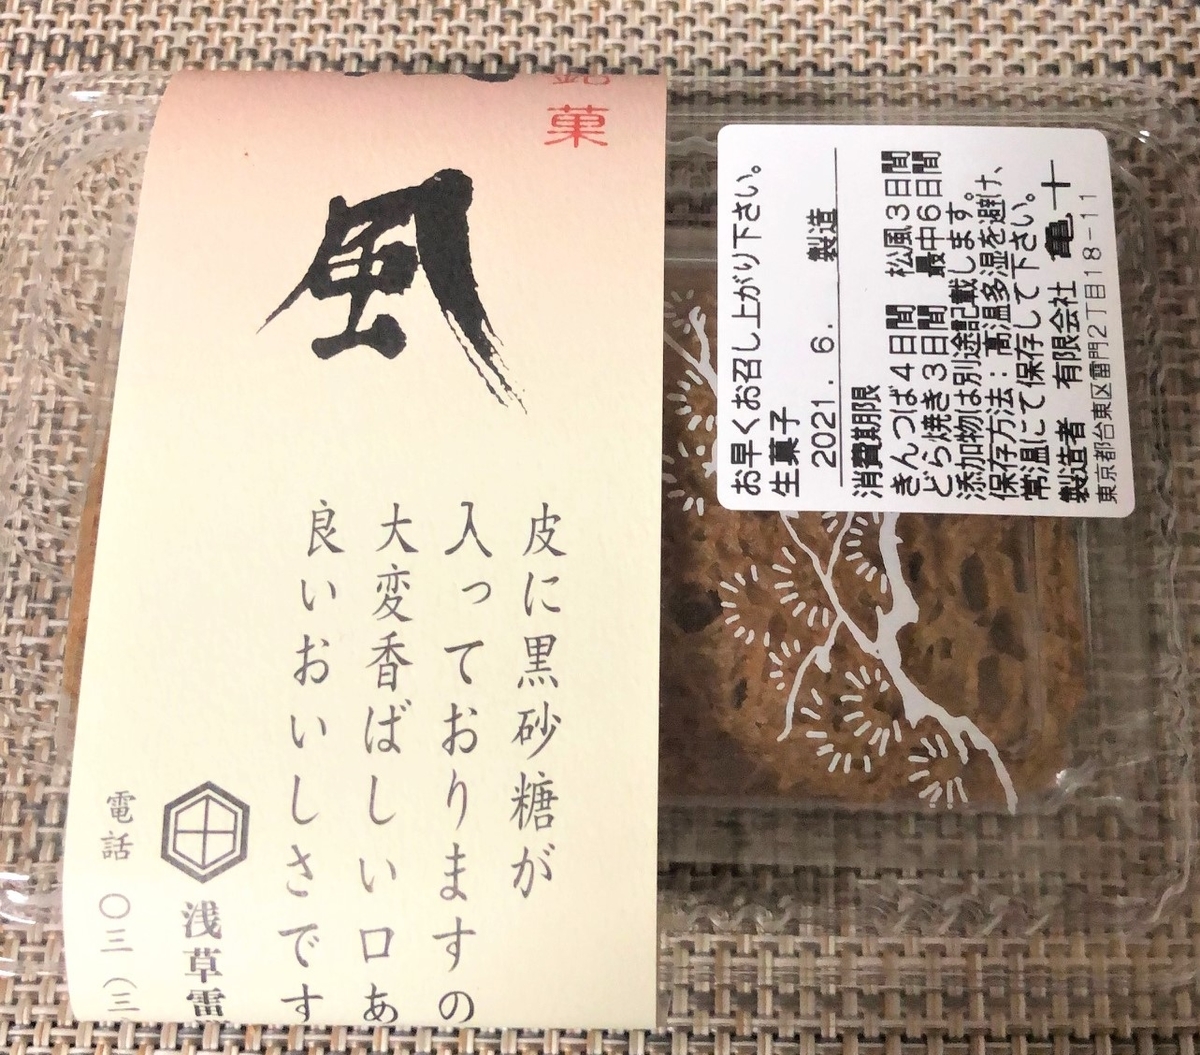 銘菓
風
皮に黒砂糖が
入っておりますの
大変香ばしい口あ
良いおいしさです
浅草雷
電話 〇三(三
お早くお召し上がり下さい。
生菓子
2021. 6. 製造
消費期限
きんつば4日間 松風3日間
どら焼き3日間 最中6日間
添加物は別途記載します。
保存方法:高温多湿を避け、
常温にて保存して下さい。
製造者 有限会社 亀十
東京都台東区雷門2丁目18-11